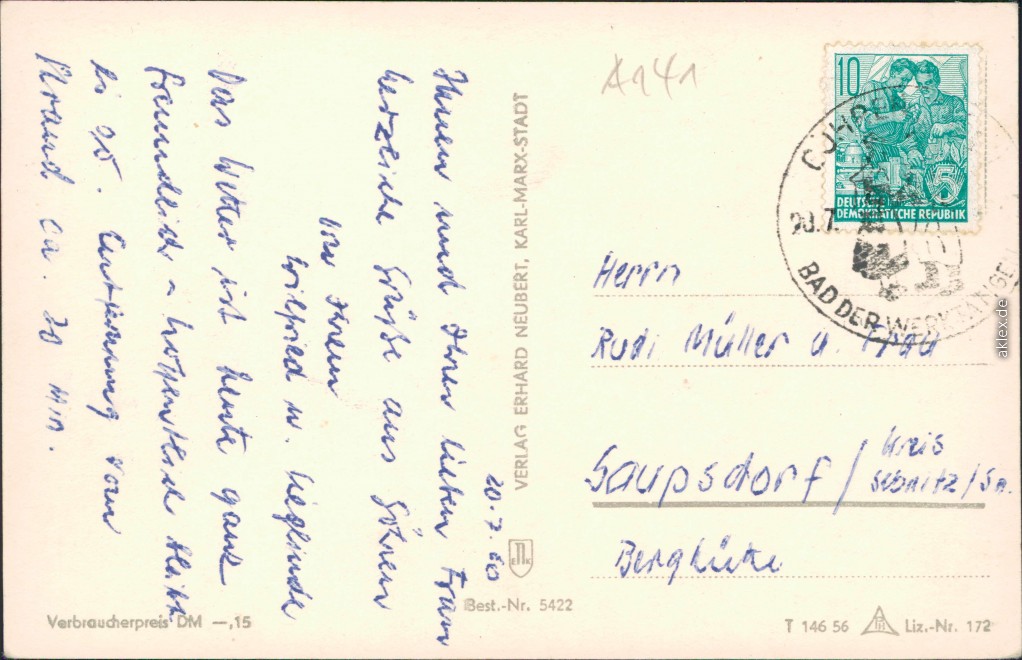 20.7.60
Ihnen und Ihrer lieben Frau
herzliche Grüße aus Göhren
von Ihrem
Wilfried u. Sieglinde
Das Wetter ist heute ganz
freundlich – hoffentlich bleibt
es so. Entfernung vom
Strand ca. 20 min.
A141
VERLAG ERHARD NEUBERT, KARL-MARX-STADT
10
DEUTSCHE
DEMOKRATISCHE REPUBLIK
5
GÖHREN
20.7.
BAD DER WERKTÄTIGEN
Herrn
Rudi Müller u. Frau
Saupsdorf / Kreis
Sebnitz / Sa.
Berghütte
Verbraucherpreis DM —,15
Best.-Nr. 5422
T 146 56
Liz.-Nr. 172
aklex.de